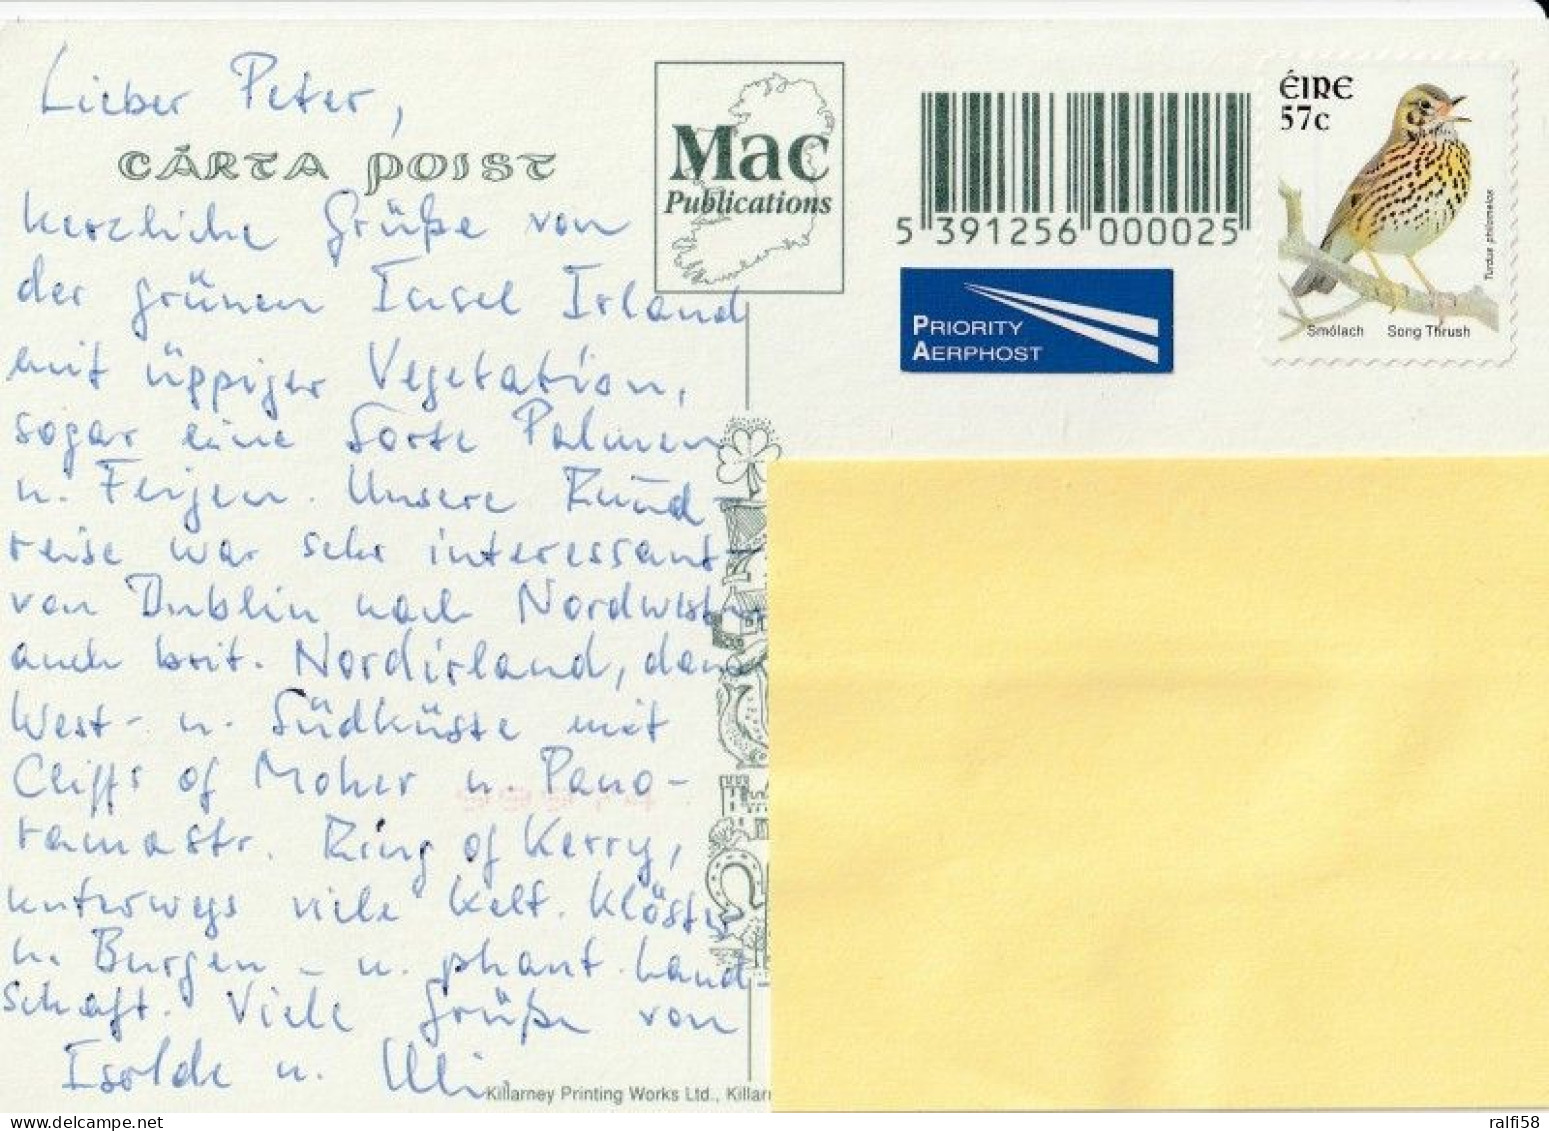 Lieber Peter,
CÁRTA POIST
herzliche Grüße von
der grünen Insel Irland
mit üppiger Vegetation,
sogar eine Sorte Palmen
u. Feigen. Unsere Rund
reise war sehr interessant
von Dublin nach Nordwesten
auch brit. Nordirland, dann
West- u. Südküste mit
Cliffs of Moher u. Pano-
ramastr. Ring of Kerry,
unterwegs viele kelt. Klöster
u. Burgen - u. phant. Land-
schaft. Viele Grüße von
Isolde u. Uli
Mac
Publications
5 391256 000025
PRIORITY
AERPHOST
ÉIRE
57c
Turdus philomelos
Smólach Song Thrush
Killarney Printing Works Ltd., Killar
ralfi58